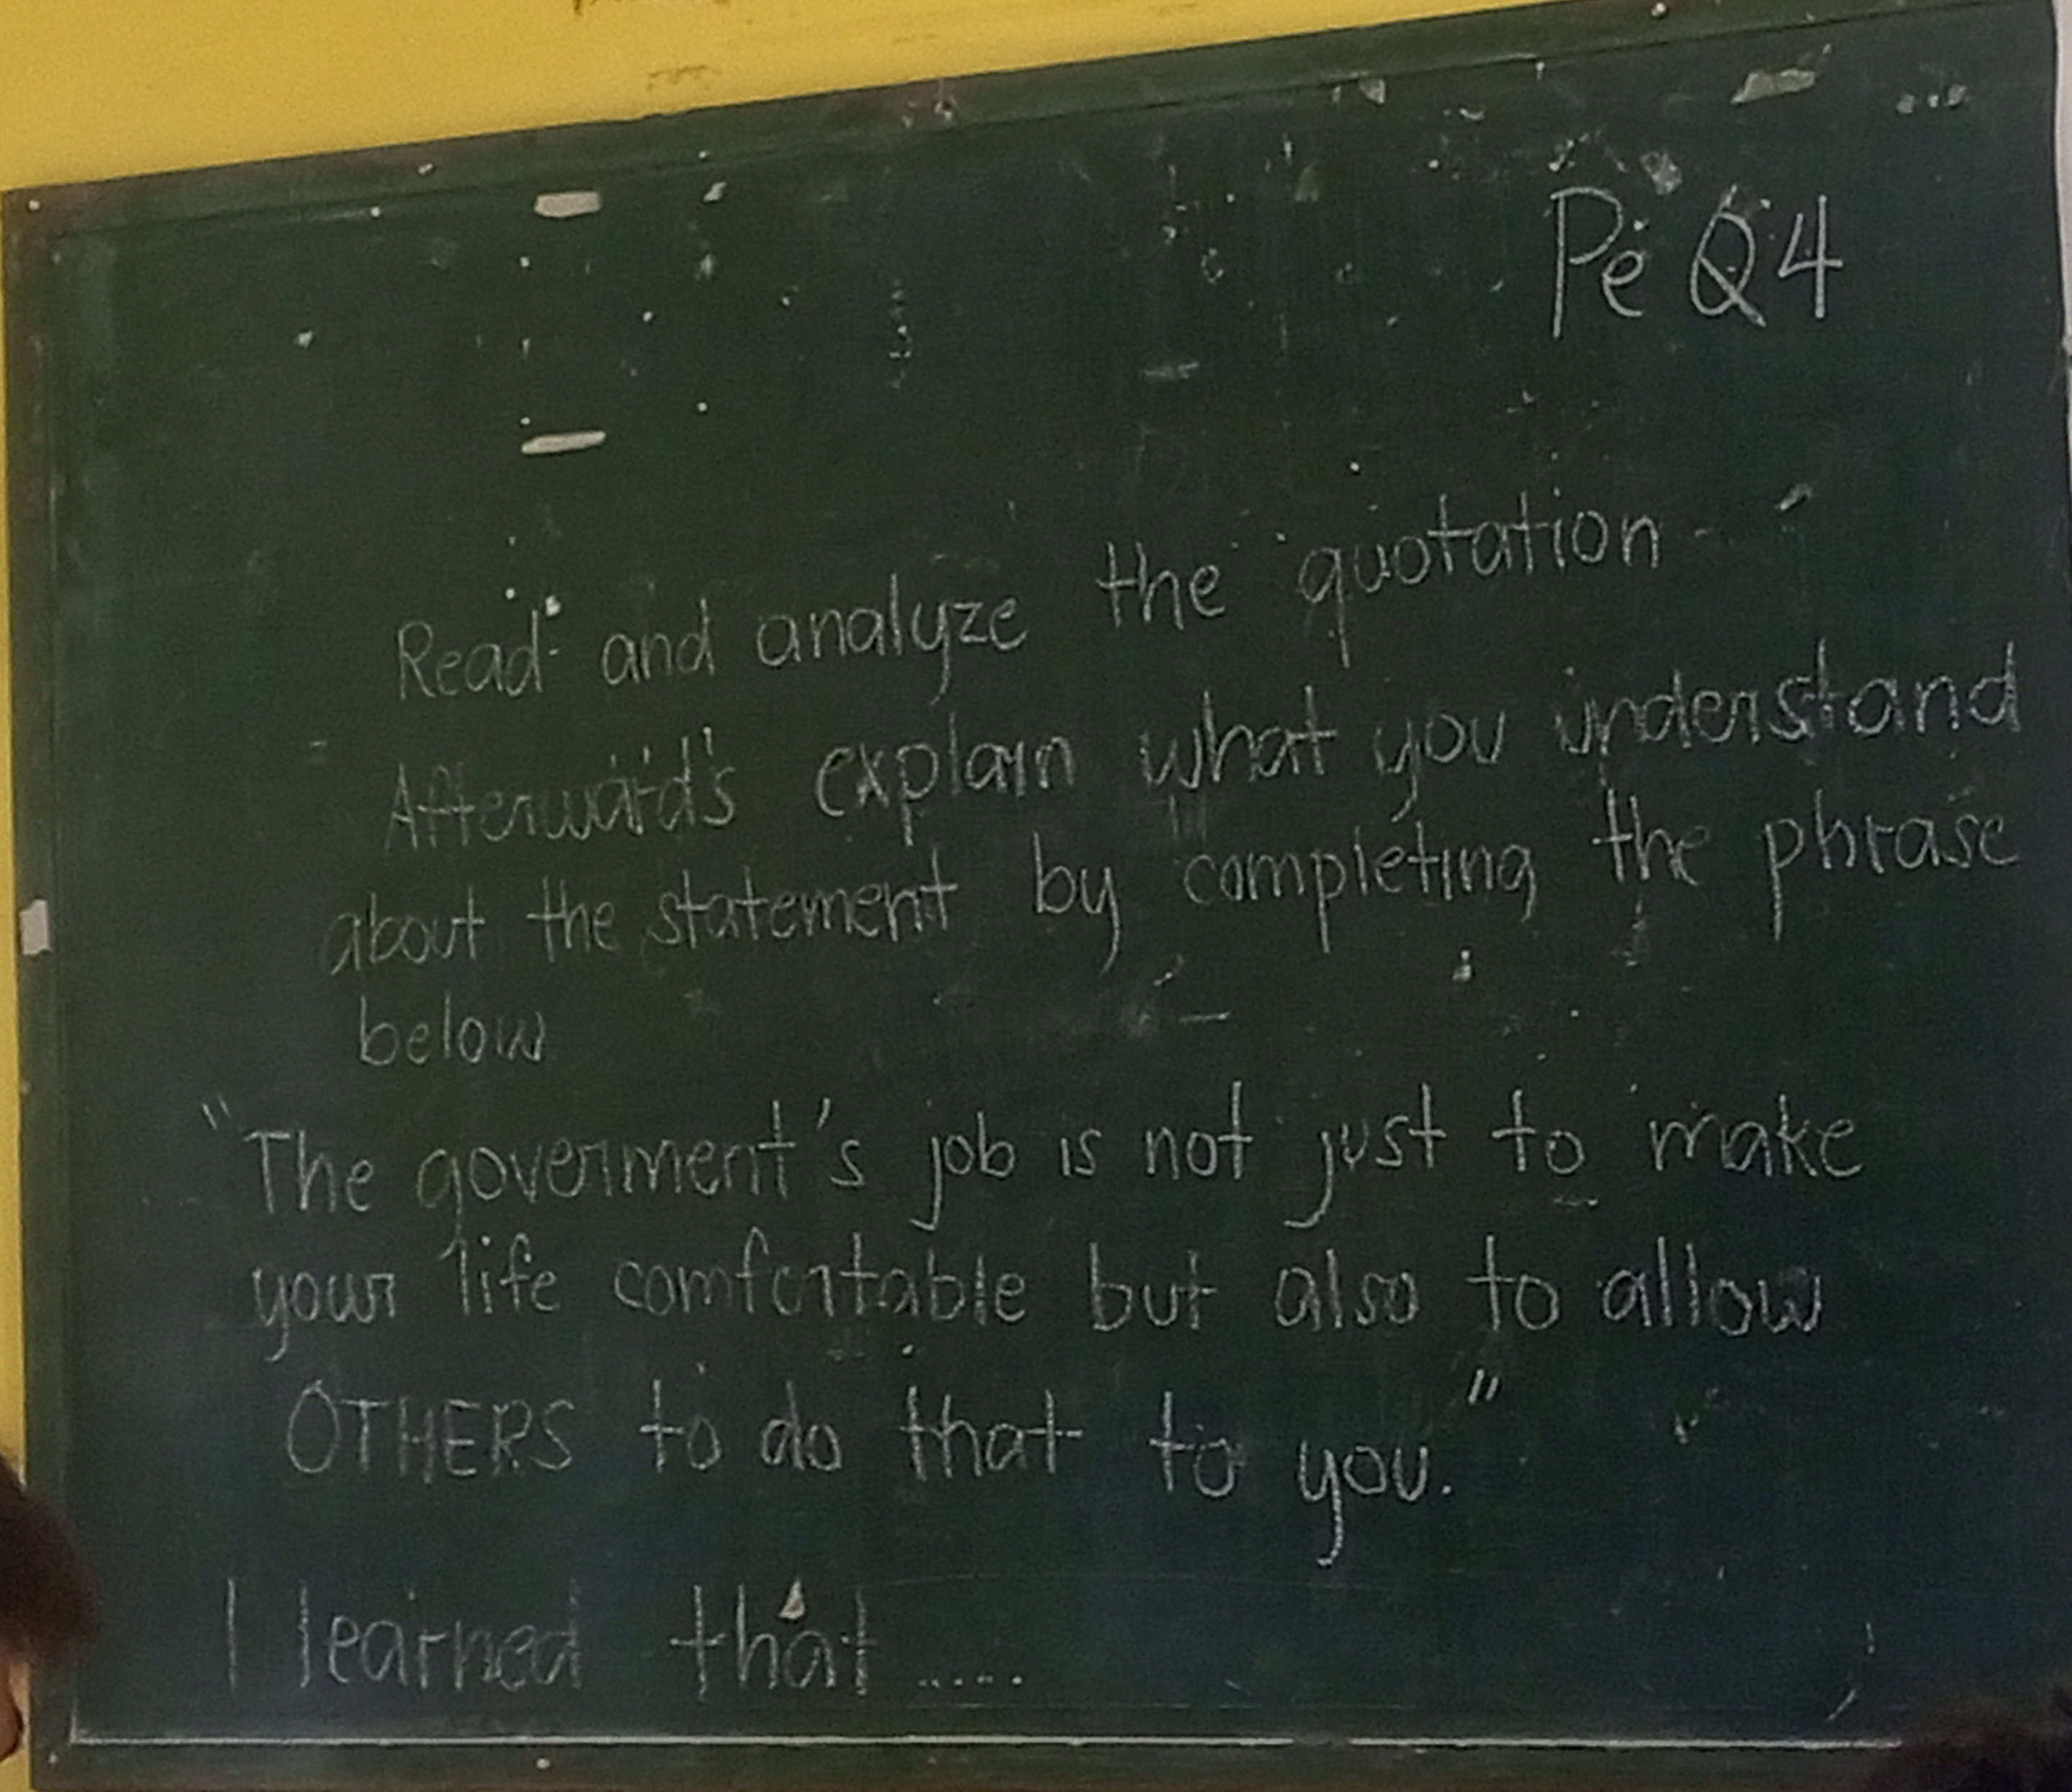 Pe Q4
Read and analyze the quotation
Afterward's explain what you understand
about the statement by completing the phrase
below
"The goverment's job is not just to make
your life comfortable but also to allow
OTHERS to do that to you."
I learned that .....